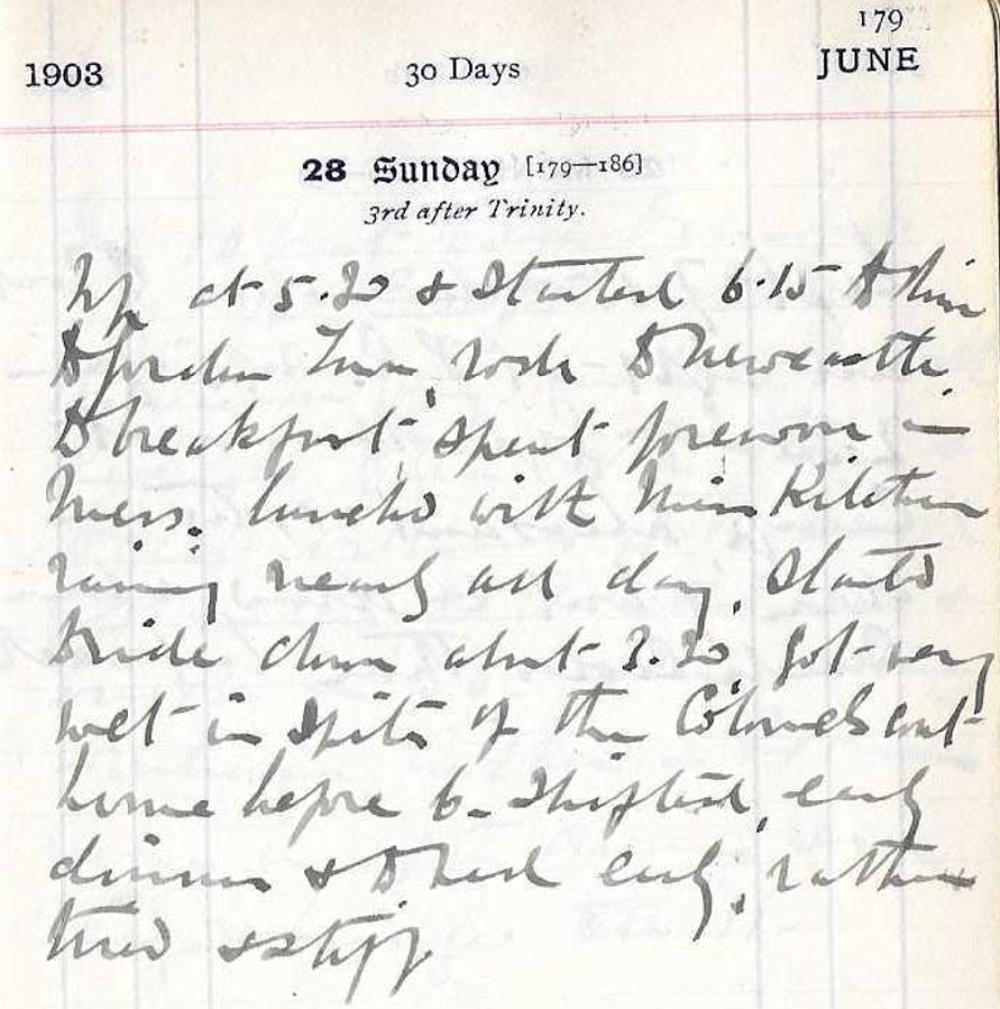 179
1903 30 Days JUNE
28 Sunday [179—186]
3rd after Trinity.
Up at 5.30 & started 6.15
to Gordon Town, rode to Newcastle
to breakfast spent forenoon in
Mess. lunched with Miss
raining nearly all day, started
to ride down about 3.30, got very
wet in spite of the Colonels coat
home before 6. Shifted, early
dinner & to bed early, rather
tired & stiff